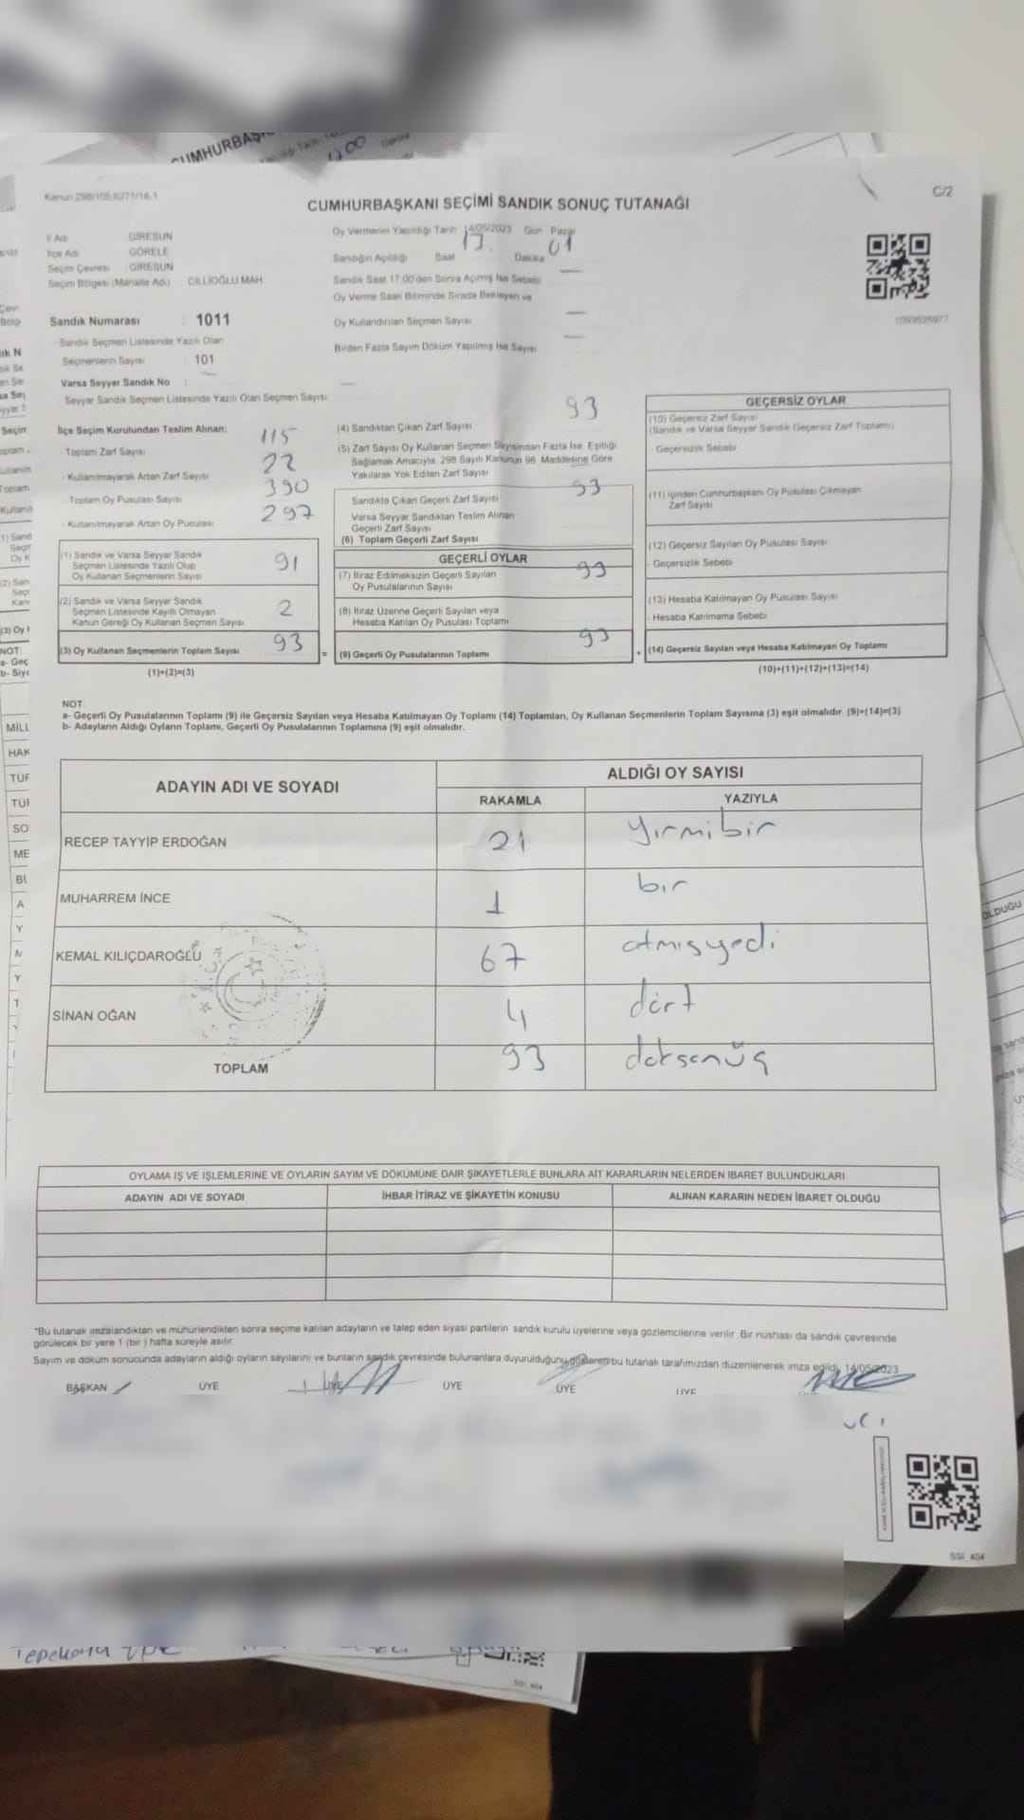 CUMHURBAŞK
Kanun 298/105
C/2
CUMHURBAŞKANI SEÇİMİ SANDIK SONUÇ TUTANAĞI
İl Adı GİRESUN
İlçe Adı GÖRELE
Seçim Çevresi GİRESUN
Seçim Bölgesi (Mahalle Adı) CİLLİOĞLU MAH.
Oy Vermenin Yapıldığı Tarih 14/05/2023 Gün Pazar
Sandığın Açıldığı Saat 17. Dakika 01
Sandık Saat 17:00'den Sonra Açılmış İse Sebebi
Oy Verme Saati Bitiminde Sırada Bekleyen ve
Oy Kullandırılan Seçmen Sayısı
Birden Fazla Sayım Döküm Yapılmış İse Sayısı
Sandık Numarası : 1011
Sandık Seçmen Listesinde Yazılı Olan
Seçmenlerin Sayısı 101
Varsa Seyyar Sandık No :
Seyyar Sandık Seçmen Listesinde Yazılı Olan Seçmen Sayısı
İlçe Seçim Kurulundan Teslim Alınan:
Toplam Zarf Sayısı 115
Kullanılmayarak Artan Zarf Sayısı 22
Toplam Oy Pusulası Sayısı 390
Kullanılmayarak Artan Oy Pusulası 297
(1) Sandık ve Varsa Seyyar Sandık
Seçmen Listesinde Yazılı Olup
Oy Kullanan Seçmenlerin Sayısı 91
(2) Sandık ve Varsa Seyyar Sandık
Seçmen Listesinde Kayıtlı Olmayan
Kanun Gereği Oy Kullanan Seçmen Sayısı 2
(3) Oy Kullanan Seçmenlerin Toplam Sayısı 93
(1)+(2)=(3)
(4) Sandıktan Çıkan Zarf Sayısı 93
(5) Zarf Sayısı Oy Kullanan Seçmen Sayısından Fazla İse, Eşitliği
Sağlamak Amacıyla, 298 Sayılı Kanunun 98. Maddesine Göre
Yakılarak Yok Edilen Zarf Sayısı
Sandıkta Çıkan Geçerli Zarf Sayısı 93
Varsa Seyyar Sandıktan Teslim Alınan
Geçerli Zarf Sayısı
(6) Toplam Geçerli Zarf Sayısı
GEÇERLİ OYLAR
(7) İtiraz Edilmeksizin Geçerli Sayılan
Oy Pusulalarının Sayısı 93
(8) İtiraz Üzerine Geçerli Sayılan veya
Hesaba Katılan Oy Pusulası Toplamı
= (9) Geçerli Oy Pusulalarının Toplamı 93
GEÇERSİZ OYLAR
(10) Geçersiz Zarf Sayısı
(Sandık ve Varsa Seyyar Sandık Geçersiz Zarf Toplamı)
Geçersizlik Sebebi
(11) İçinden Cumhurbaşkanı Oy Pusulası Çıkmayan
Zarf Sayısı
(12) Geçersiz Sayılan Oy Pusulası Sayısı
Geçersizlik Sebebi
(13) Hesaba Katılmayan Oy Pusulası Sayısı
Hesaba Katılmama Sebebi
+ (14) Geçersiz Sayılan veya Hesaba Katılmayan Oy Toplamı
(10)+(11)+(12)+(13)=(14)
NOT
a- Geçerli Oy Pusulalarının Toplamı (9) ile Geçersiz Sayılan veya Hesaba Katılmayan Oy Toplamı (14) Toplamları, Oy Kullanan Seçmenlerin Toplam Sayısına (3) eşit olmalıdır. (9)+(14)=(3)
b- Adayların Aldığı Oyların Toplamı, Geçerli Oy Pusulalarının Toplamına (9) eşit olmalıdır.
ADAYIN ADI VE SOYADI ALDIĞI OY SAYISI
RAKAMLA YAZIYLA
RECEP TAYYİP ERDOĞAN 21 yirmibir
MUHARREM İNCE 1 bir
KEMAL KILIÇDAROĞLU 67 atmışyedi
SİNAN OĞAN 4 dört
TOPLAM 93 doksanüç
OYLAMA İŞ VE İŞLEMLERİNE VE OYLARIN SAYIM VE DÖKÜMÜNE DAİR ŞİKAYETLERLE BUNLARA AİT KARARLARIN NELERDEN İBARET BULUNDUKLARI
ADAYIN ADI VE SOYADI İHBAR İTİRAZ VE ŞİKAYETİN KONUSU ALINAN KARARIN NEDEN İBARET OLDUĞU
*Bu tutanak imzalandıktan ve mühürlendikten sonra seçime katılan adayların ve talep eden siyasi partilerin sandık kurulu üyelerine veya gözlemcilerine verilir. Bir nüshası da sandık çevresinde
görülecek bir yere 1 (bir ) hafta süreyle asılır.
Sayım ve döküm sonucunda adayların aldığı oyların sayılarını ve bunların sandık çevresinde bulunanlara duyurulduğunu gösteren bu tutanak tarafımızdan düzenlenerek imza edildi. 14/05/2023
BAŞKAN ÜYE ÜYE ÜYE ÜYE ÜYE
SSİ_404
SSİ_404